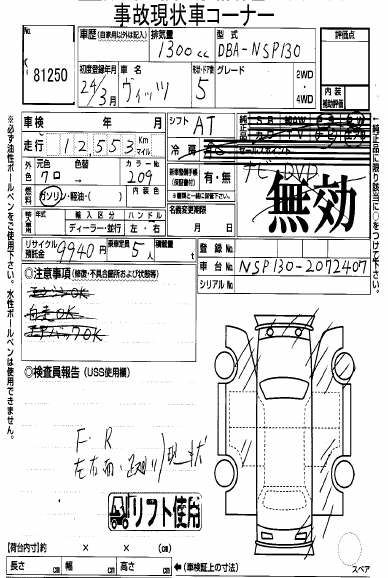 事故現状車コーナー
No. 81250
コーナー
車歴 (自家用以外は記入)
排気量 1300cc
型式 DBA-NSP130
評価点
初度登録年月 24/3月
車名 ヴィッツ
形状・ドア数 5
グレード
2WD
4WD
内装補助評価
車検 年 月
シフト AT
純正品
走行 12,553 Km マイル
冷房 AC
ナビDVD
外色 元色 クロ
色替
カラーNo. 209
内装色
新車整備手帳(保証書付) 有・無
無効
燃料 ガソリン・軽油・( )
名義変更期限 月 日
年式
輸入区分 ディーラー・並行
ハンドル 左・右
リサイクル預託金 9940円
乗車定員 5人
積載量 t
登録No.
車台No. NSP130-2072407
シリアルNo.
◎注意事項 (修復・不具合箇所および状態等)
エンジンOK
自走OK
エアバックOK
◎検査員報告 (USS使用欄)
F・R
現状
リフト使用
【荷台内寸】約 × × (cm)
長さ cm 幅 cm 高さ cm ←(車検証上の寸法)
スペア
※必ず油性ボールペンをご使用下さい。水性ボールペンは使用できません。
純正品に限り該当に○をつけて下さい。